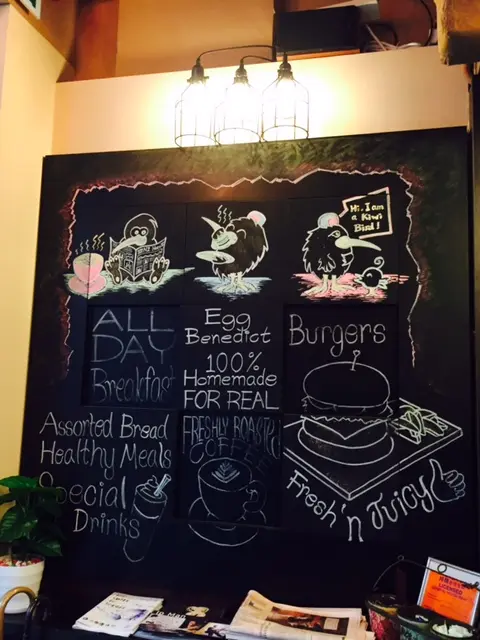 Hi, I am
a Kiwi
Bird!
ALL
DAY
Breakfast
Egg
Benedict
100%
Homemade
FOR REAL
Burgers
Assorted Bread
Healthy Meals
Special
Drinks
FRESHLY ROASTED
COFFEE
Fresh 'n Juicy